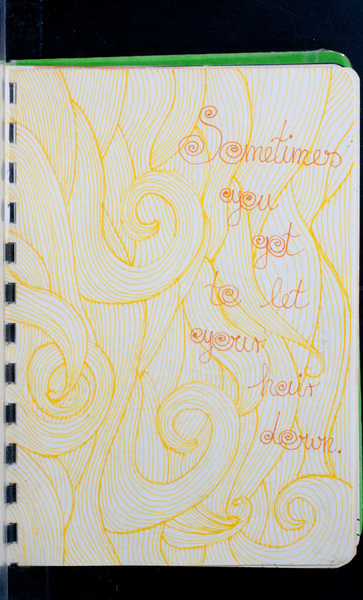 Sometimes
you
got
to let
your
hair
down.